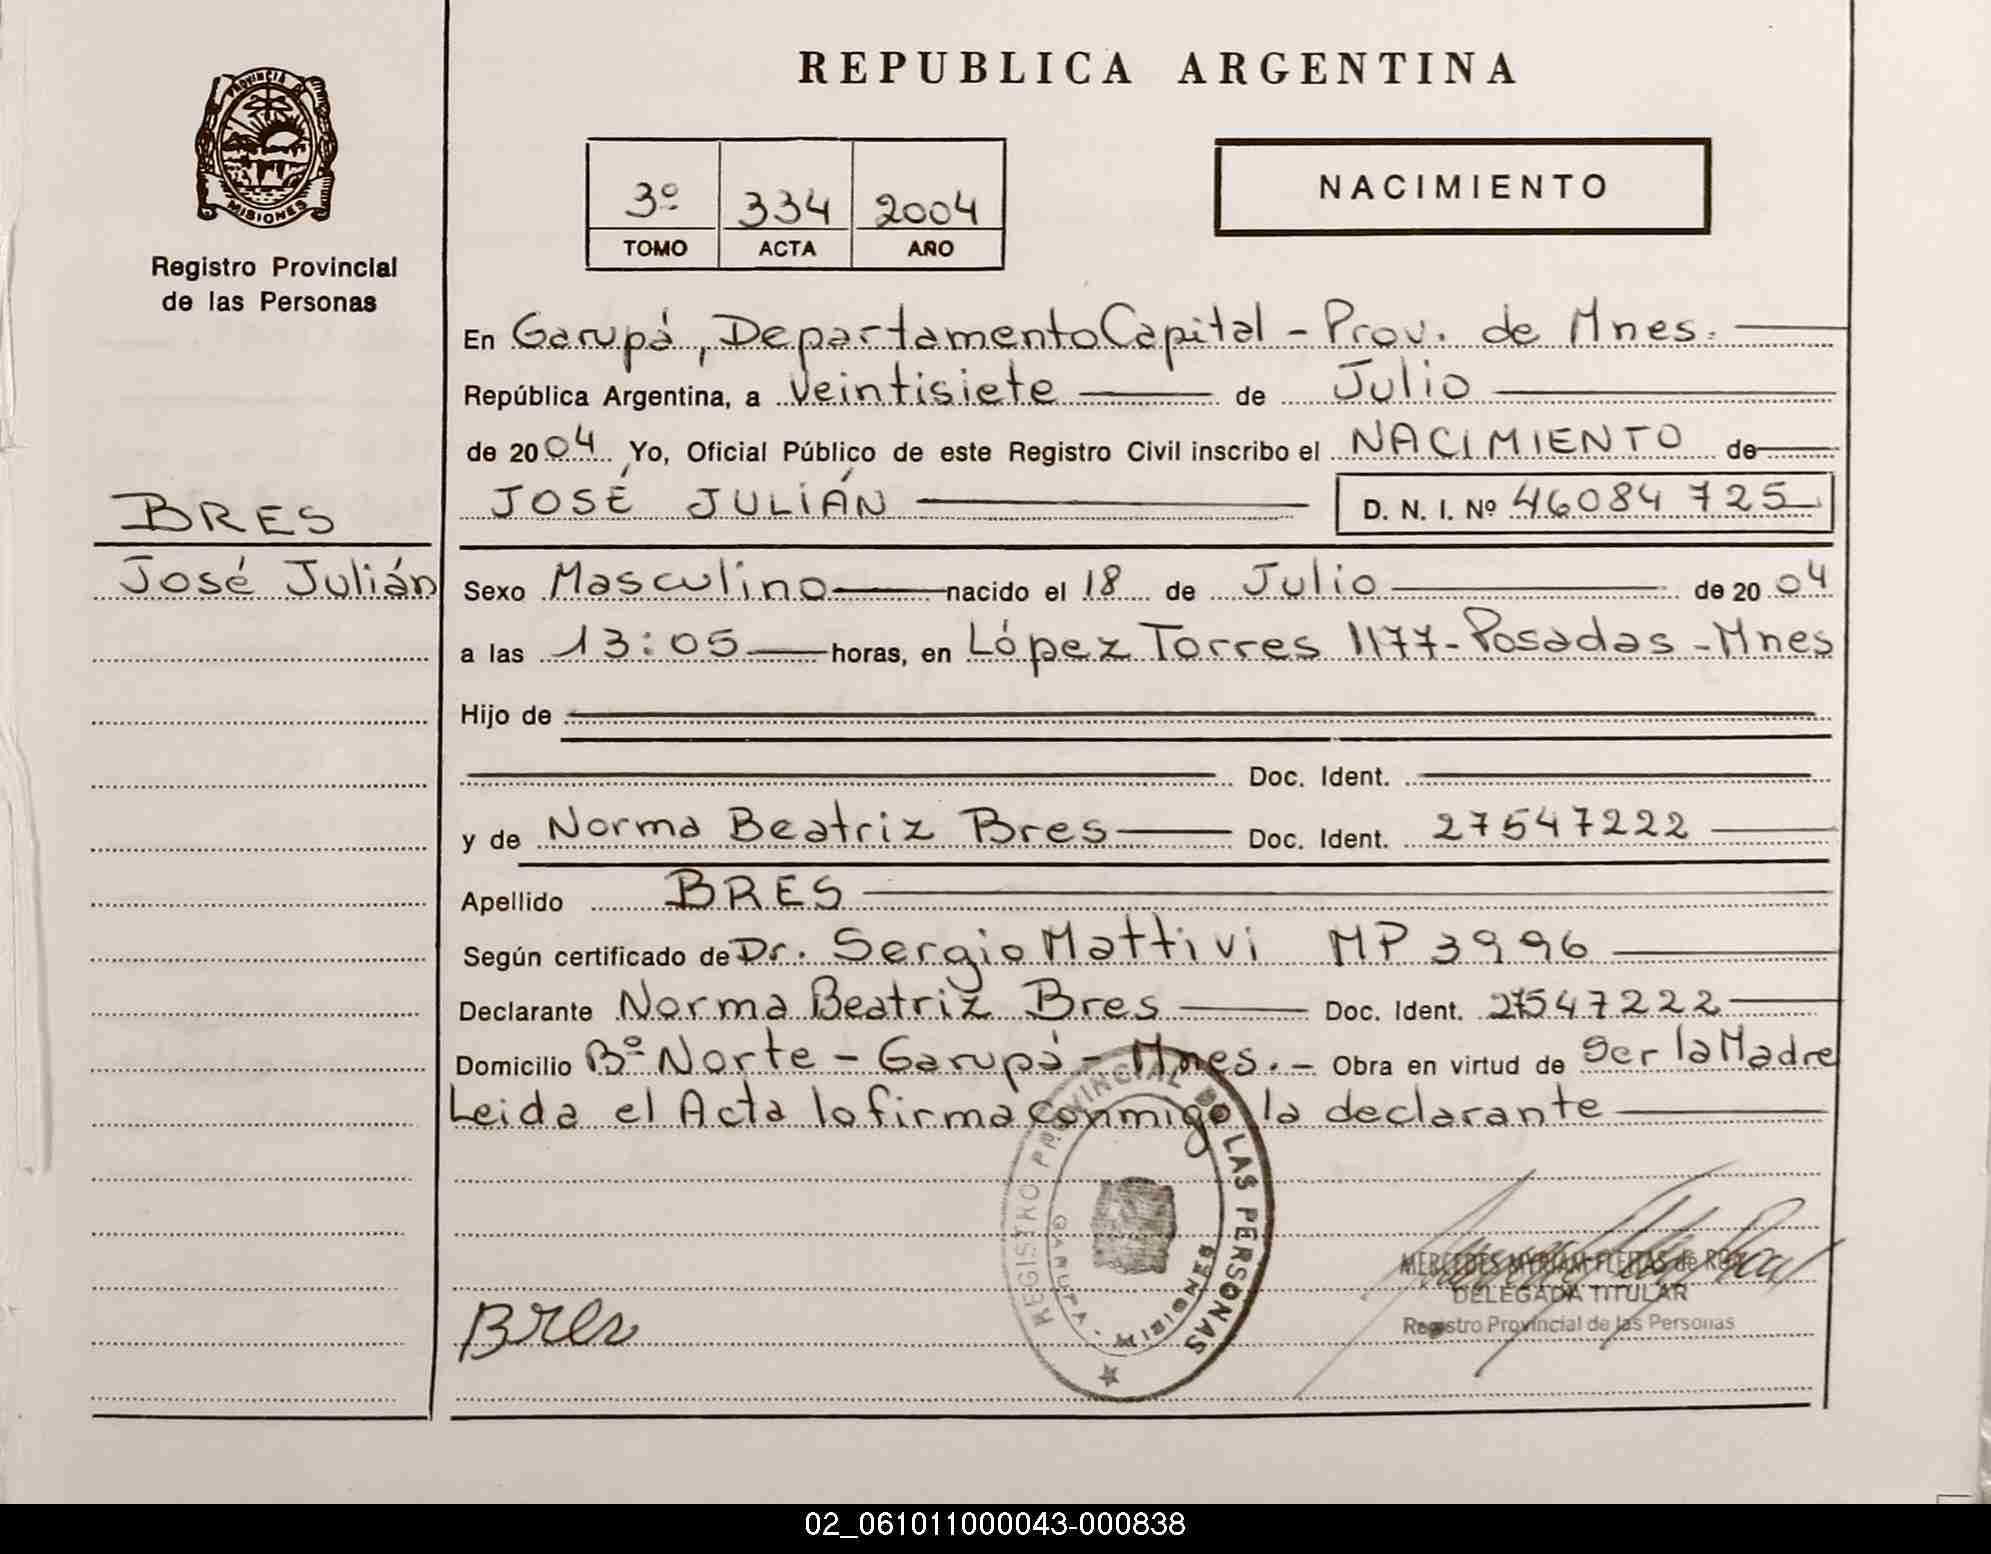 REPUBLICA ARGENTINA
PROVINCIA DE
MISIONES
Registro Provincial
de las Personas
3º 334 2004
TOMO ACTA AÑO
NACIMIENTO
En Garupá, Departamento Capital - Prov. de Mnes.
República Argentina, a Veintisiete de Julio
de 2004 Yo, Oficial Público de este Registro Civil inscribo el NACIMIENTO de
JOSÉ JULIÁN D. N. I. Nº 46084725
BRES
José Julián
Sexo Masculino nacido el 18 de Julio de 2004
a las 13:05 horas, en López Torres 1177 - Posadas - Mnes
Hijo de
Doc. Ident.
y de Norma Beatriz Bres Doc. Ident. 27547222
Apellido BRES
Según certificado de Dr. Sergio Mattivi MP 3996
Declarante Norma Beatriz Bres Doc. Ident. 27547222
Domicilio Bº Norte - Garupá - Mnes. - Obra en virtud de Ser la Madre
Leida el Acta lo firma conmigo la declarante
REGISTRO PROVINCIAL DE LAS PERSONAS
GARUPA - MISIONES
Bres
MERCEDES MYRIAM FLEITAS de
DELEGADA TITULAR
Registro Provincial de las Personas
02_061011000043-000838